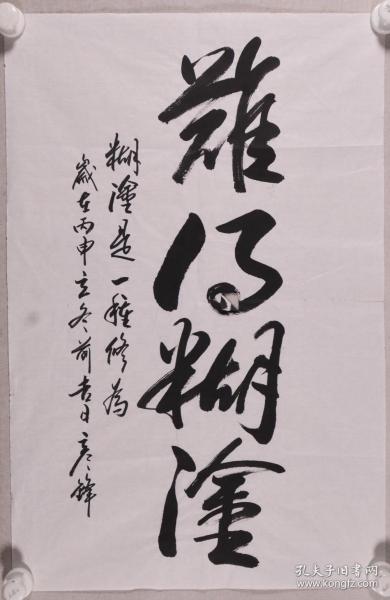 難得糊塗
糊塗是一種修為
歲在丙申立冬前吉日彥鋒
孔夫子旧书网
www.kongfz.com